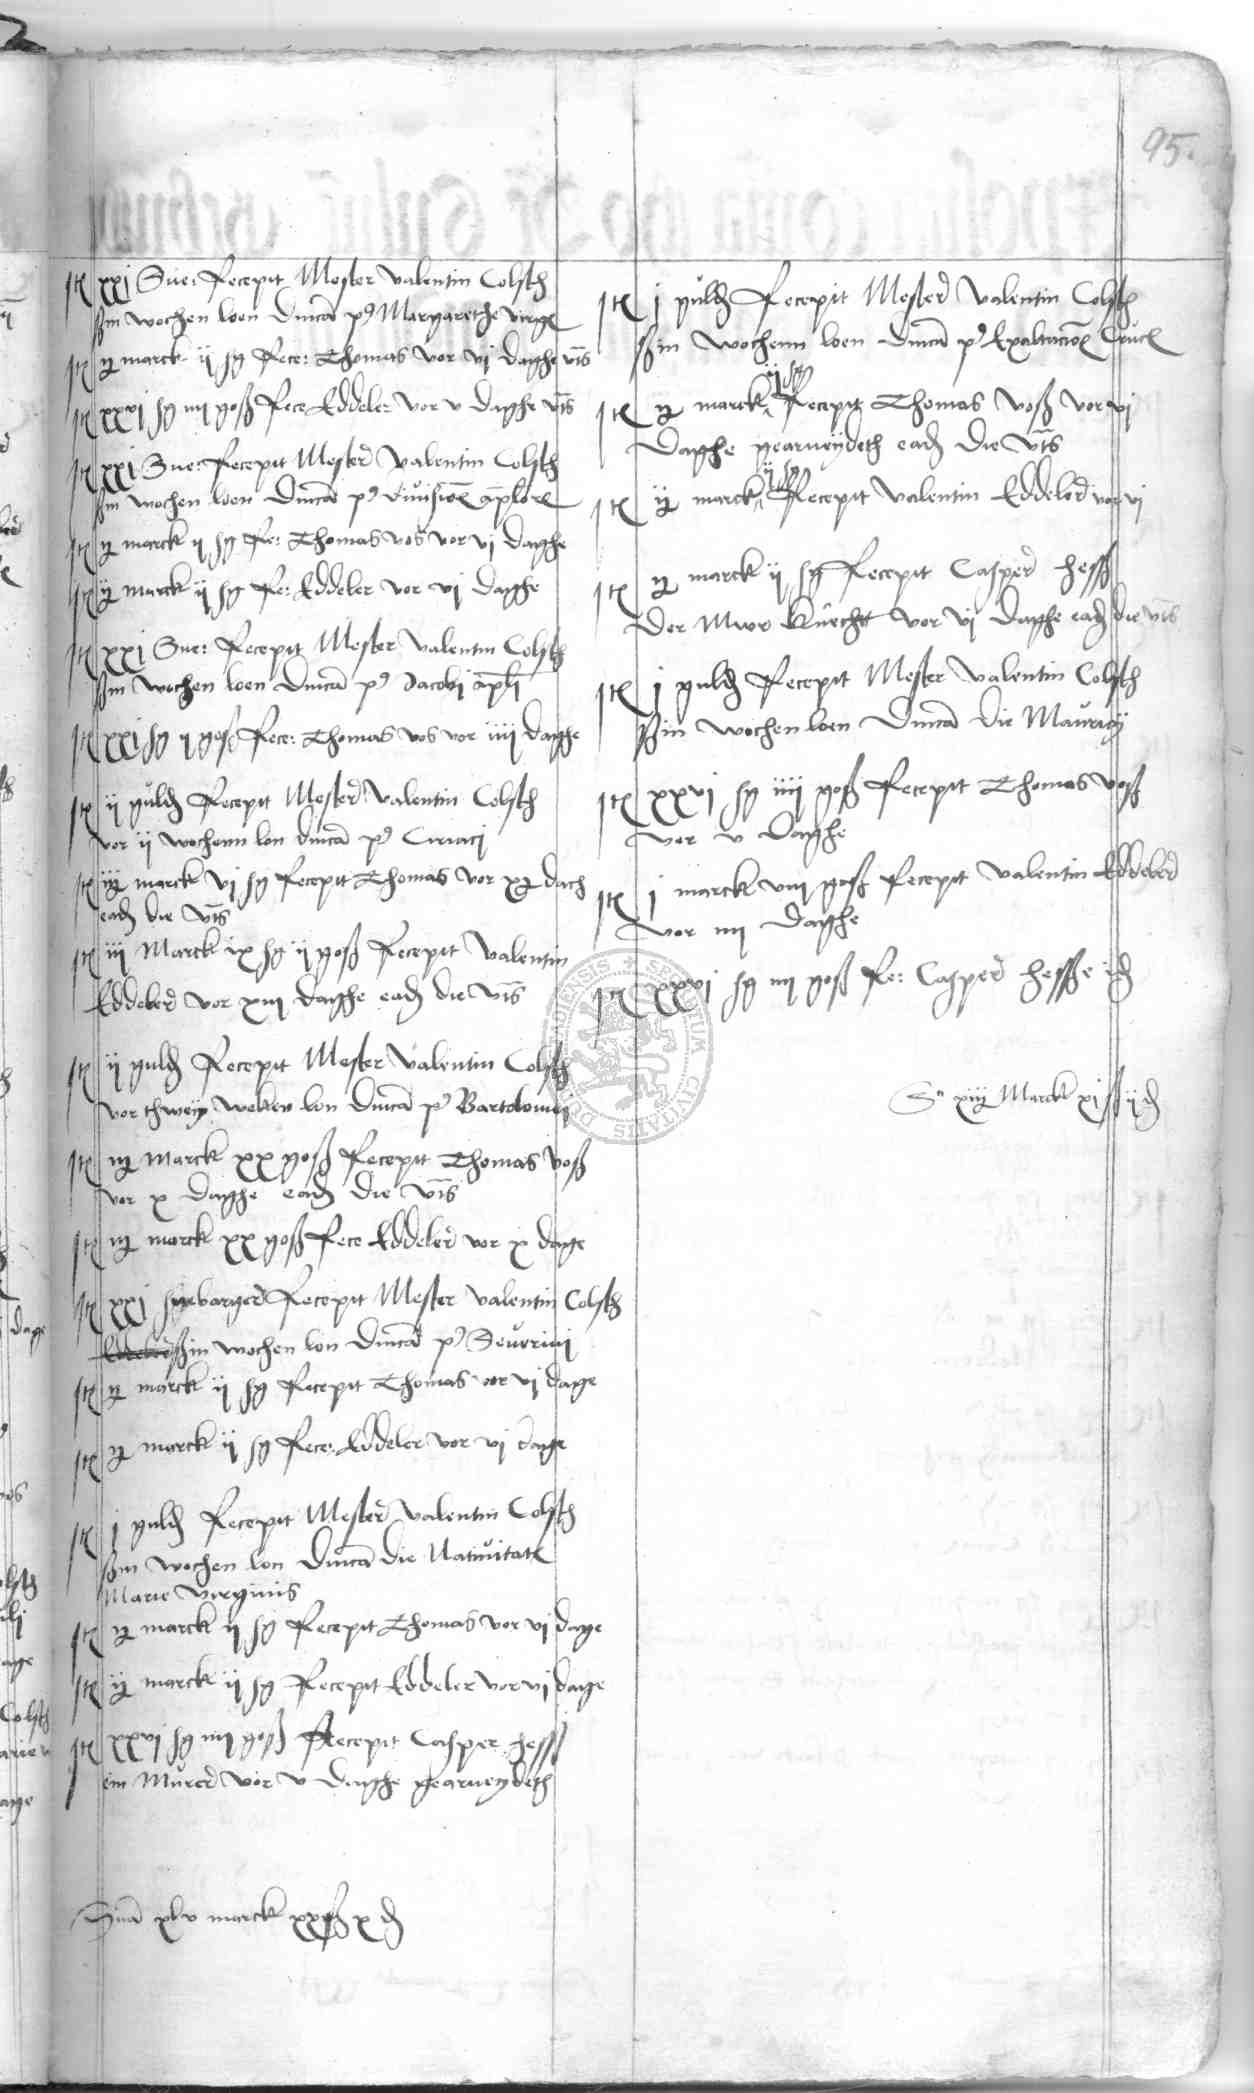 95.
Ite xxi Sne: Recepit Mester Valentin Colsth
ssin wochen loen Dnica p9 Margarethe virgi
Ite ij marck ij sg Rece: Thomas vor vj daghe vts
Ite xxvj sg iiij goß Rece Eddeler vor v daghe vts
Ite xxi Sne: Recepit Mester Valentin Colsth
ssin wochen loen Dnica p9 divisioe aplore
Ite ij marck ij sg Re: Thomas vos vor vj daghe
Ite ij marck ij sg Re: Eddeler vor vj daghe
Ite xxi Sne: Recepit Mester Valentin Colsth
ssin wochen loen Dnica p9 Jacobi apli
Ite xxi sg ij goß Rece: Thomas vos vor iiij daghe
Ite ij guld Recepit Mester Valentin Colsth
vor ij wochenn lon dnica p9 Ciriaci
Ite iij marck vj sg Recepit Thomas vor dach
ead die vts
Ite iij Marck ix sg ij goß Recepit Valentin
Eddeler vor xiij daghe ead die vts
Ite ij guld Recepit Mester Valentin Colsth
vor thweyn weken lon Dnica p9 Bartolomei
Ite iij marck xx goß Recepit Thomas voß
vor x daghe ead die vts
Ite iij marck xx goß Rece Eddeler vor x dage
Ite xxi snebarger Recepit Mester Valentin Colsth
ssin wochen lon Dnica p9 Severini
Ite ij marck ij sg Recepit Thomas vor vj dage
Ite ij marck ij sg Rece: Eddeler vor vj dage
Ite j guld Recepit Mester Valentin Colsth
ssin wochen lon Dnica die Nativitate
Marie virginis
Ite ij marck ij sg Recepit Thomas vor vj dage
Ite ij marck ij sg Recepit Eddeler vor vj dage
Ite xxvj sg iiij goß Recepit Casper Hesß
ein Murer vor v daghe gearveydeth
Suma xlv marck xxß x d
Ite j guld Recepit Mester Valentin Colsth
ssin wochenn loen Dnica p9 Exaltacioe Cruce
Ite ij marck ij sg Recepit Thomas voß vor vj
daghe gearveydeth ead die vts
Ite ij marck ij sg Recepit Valentin Eddeler vor vj
Ite ij marck ij sg Recepit Casper Hesß
Der Mwr knecht vor vj daghe ead die vts
Ite j guld Recepit Mester Valentin Colsth
ssin wochen loen Dnica die Mauricij
Ite xxvj sg iiij goß Recepit Thomas voß
vor v daghe
Ite j marck viij goß Recepit Valentin Eddeler
vor iiij daghe
Ite xxvj sg iiij goß Re: Casper Hesße id
Sa xiij Marck xj ß ij d